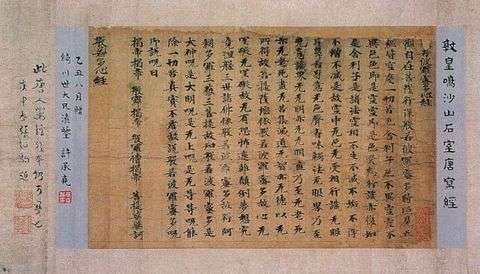 敦皇鳴沙山石室唐寫經
觀自在菩薩行深般若波羅蜜多時照見五
蘊皆空度一切苦厄舍利子色不異空空不
異色色即是空空即是色受想行識亦復如
是舍利子是諸法空相不生不滅不垢不淨
不增不減是故空中无色无受想行識无眼
耳鼻舌身意无色聲香味觸法无眼界乃至
无意識界无无明亦无无明盡乃至无老死
亦无老死盡无苦集滅道无智亦无得以无
所得故菩提薩埵依般若波羅蜜多故心无
罣礙无罣礙故无有恐怖遠離顛倒夢想究
竟涅槃三世諸佛依般若波羅蜜多故得阿
耨多羅三藐三菩提故知般若波羅蜜多是
大神呪是大明呪是无上呪是无等等呪能
除一切苦真實不虛故說般若波羅蜜多呪
即說呪曰
揭帝揭帝 般羅揭帝 般羅僧揭帝 菩提莎婆訶
般若多心經
乙丑八月贈
世大兄清鑒 許承堯
此唐人寫經